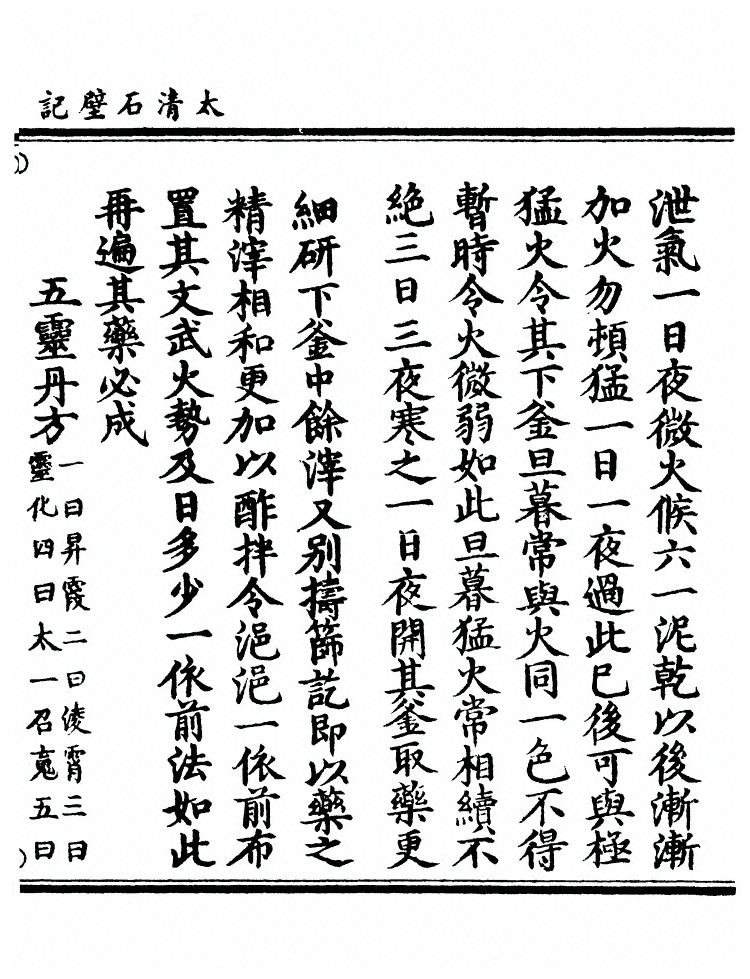 太清石壁記
泄氣一日夜微火候六一泥乾以後漸漸
加火勿頓猛一日一夜過此已後可與極
猛火令其下釜旦暮常與火同一色不得
暫時令火微弱如此旦暮猛火常相續不
絶三日三夜寒之一日夜開其釜取藥更
細研下釜中餘滓又別擣篩訖即以藥之
精滓相和更加以酢拌令浥浥一依前布
置其文武火勢及日多少一依前法如此
再遍其藥必成
五靈丹方
一曰昇霞二曰淩霄三曰
靈化四曰太一召䰟五曰